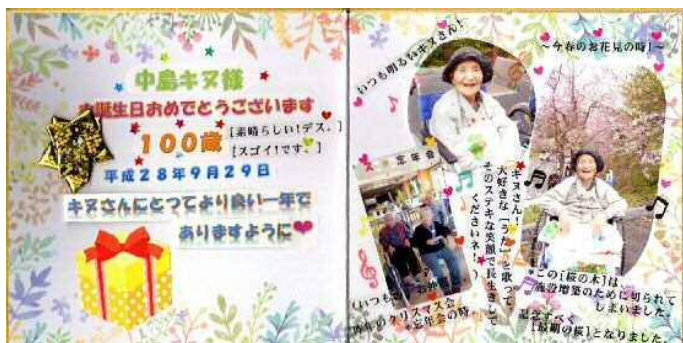 中島キヌ様
お誕生日おめでとうございます
100歳
[素晴らしい!デス。]
[スゴイ!です。]
平成28年9月29日
キヌさんにとってより良い一年で
ありますように
いつも明るいキヌさん!
～今春のお花見の時!～
忘年会
キヌさん!
大好きな「うた」を歌って
そのステキな笑顔で長生きして
くださいネ!
(いつもの
昨年のクリスマス会
忘年会の時
この[桜の木]は
施設増築のために切られて
しまいました。
記念すべく
[最期の桜]となりました。